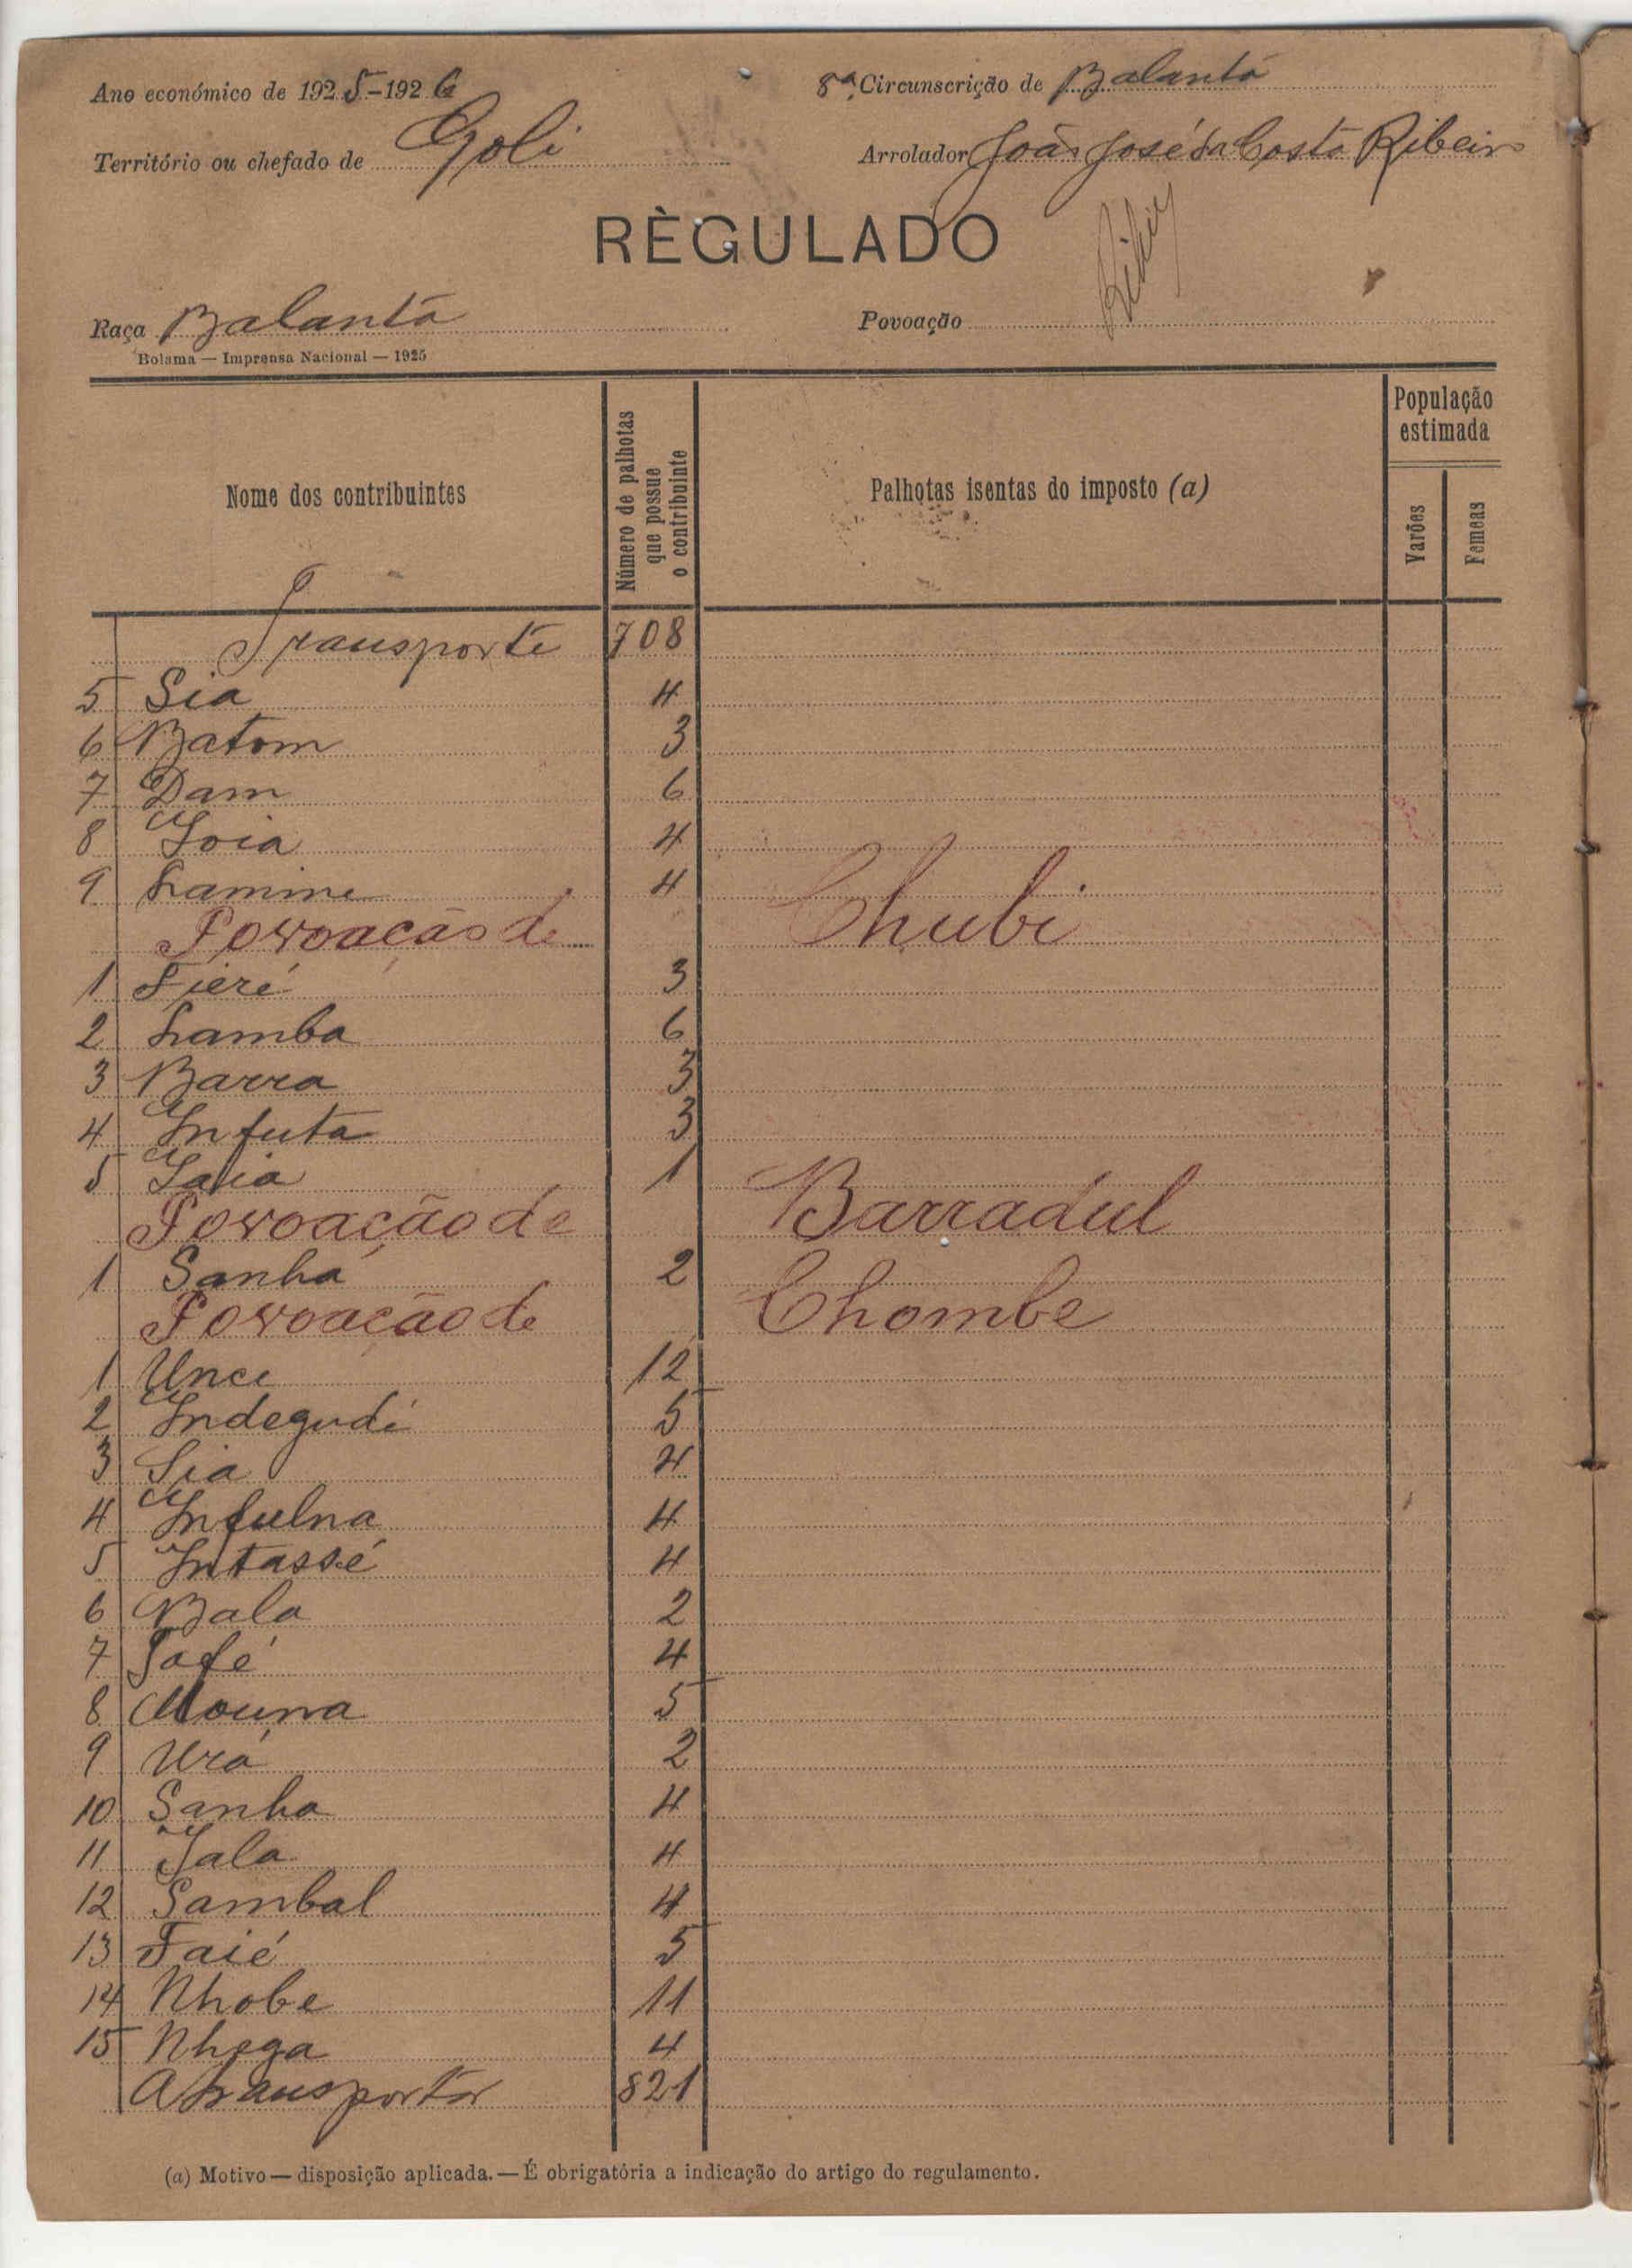 Ano económico de 1925-1926
8ª Circunscrição de Balanta
Território ou chefado de Goli
Arrolador João José da Costa Ribeiro
RÈGULADO
Raça Balanta
Povoação
Bolama — Imprensa Nacional — 1925
Nome dos contribuintes
Número de palhotas que possue o contribuinte
Palhotas isentas do imposto (a)
População estimada
Varões
Femeas
Transporte 708
5 Sia 4
6 Batom 3
7 Dam 6
8 Ioia 4
9 Lamine 4
Povoação de Chubi
1 Fieré 3
2 Lamba 6
3 Barra 3
4 Infuta 3
5 Iaia 1
Povoação de Barradul
1 Sanha 2
Povoação de Chombe
1 Unce 12
2 Indegudi 5
3 Sia 4
4 Infulna 4
5 Intassé 4
6 Bala 2
7 Fafé 4
8 Mouna 5
9 Urá 2
10 Sanha 4
11 Iala 4
12 Sambal 4
13 Faié 5
14 Nhobe 11
15 Nhaga 4
A transportar 821
(a) Motivo — disposição aplicada. — É obrigatória a indicação do artigo do regulamento.